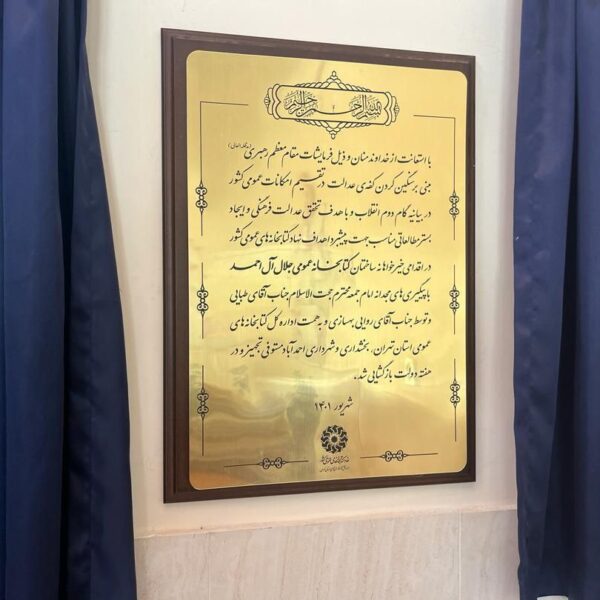 بسم الله الرحمن الرحیم
با استعانت از خداوند منان و ذیل فرمایشات مقام معظم رهبری (مدظله العالی)
مبنی بر سنگین کردن کفه‌ی عدالت در تقسیم امکانات عمومی کشور
در بیانیه گام دوم انقلاب و با هدف تحقق عدالت فرهنگی و ایجاد
بستر مطالعاتی مناسب جهت پیشبرد اهداف نهاد کتابخانه‌های عمومی کشور
در اقدامی خیرخواهانه ساختمان کتابخانه عمومی جلال آل احمد
با پیگیری‌های مجدانه امام جمعه محترم حجت الاسلام جناب آقای طیبایی
و توسط جناب آقای روایی بهسازی و به همت اداره کل کتابخانه‌های
عمومی استان تهران، بخشداری و شهرداری احمدآباد مستوفی تجهیز و در
هفته دولت بازگشایی شد.
شهریور ۱۴۰۱